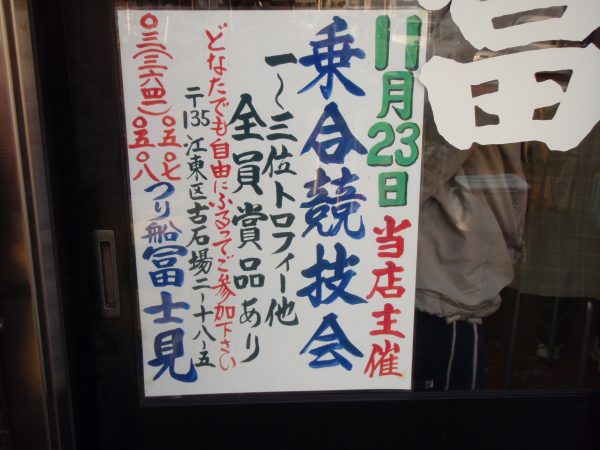 11月23日当店主催
乗合競技会
一〜三位トロフィー他
全員賞品あり
どなたでも自由にふるってご参加下さい
〒135 江東区古石場二ー十八ー五
つり船冨士見
〇三(三六四一)〇五〇七
〇五〇八
冨